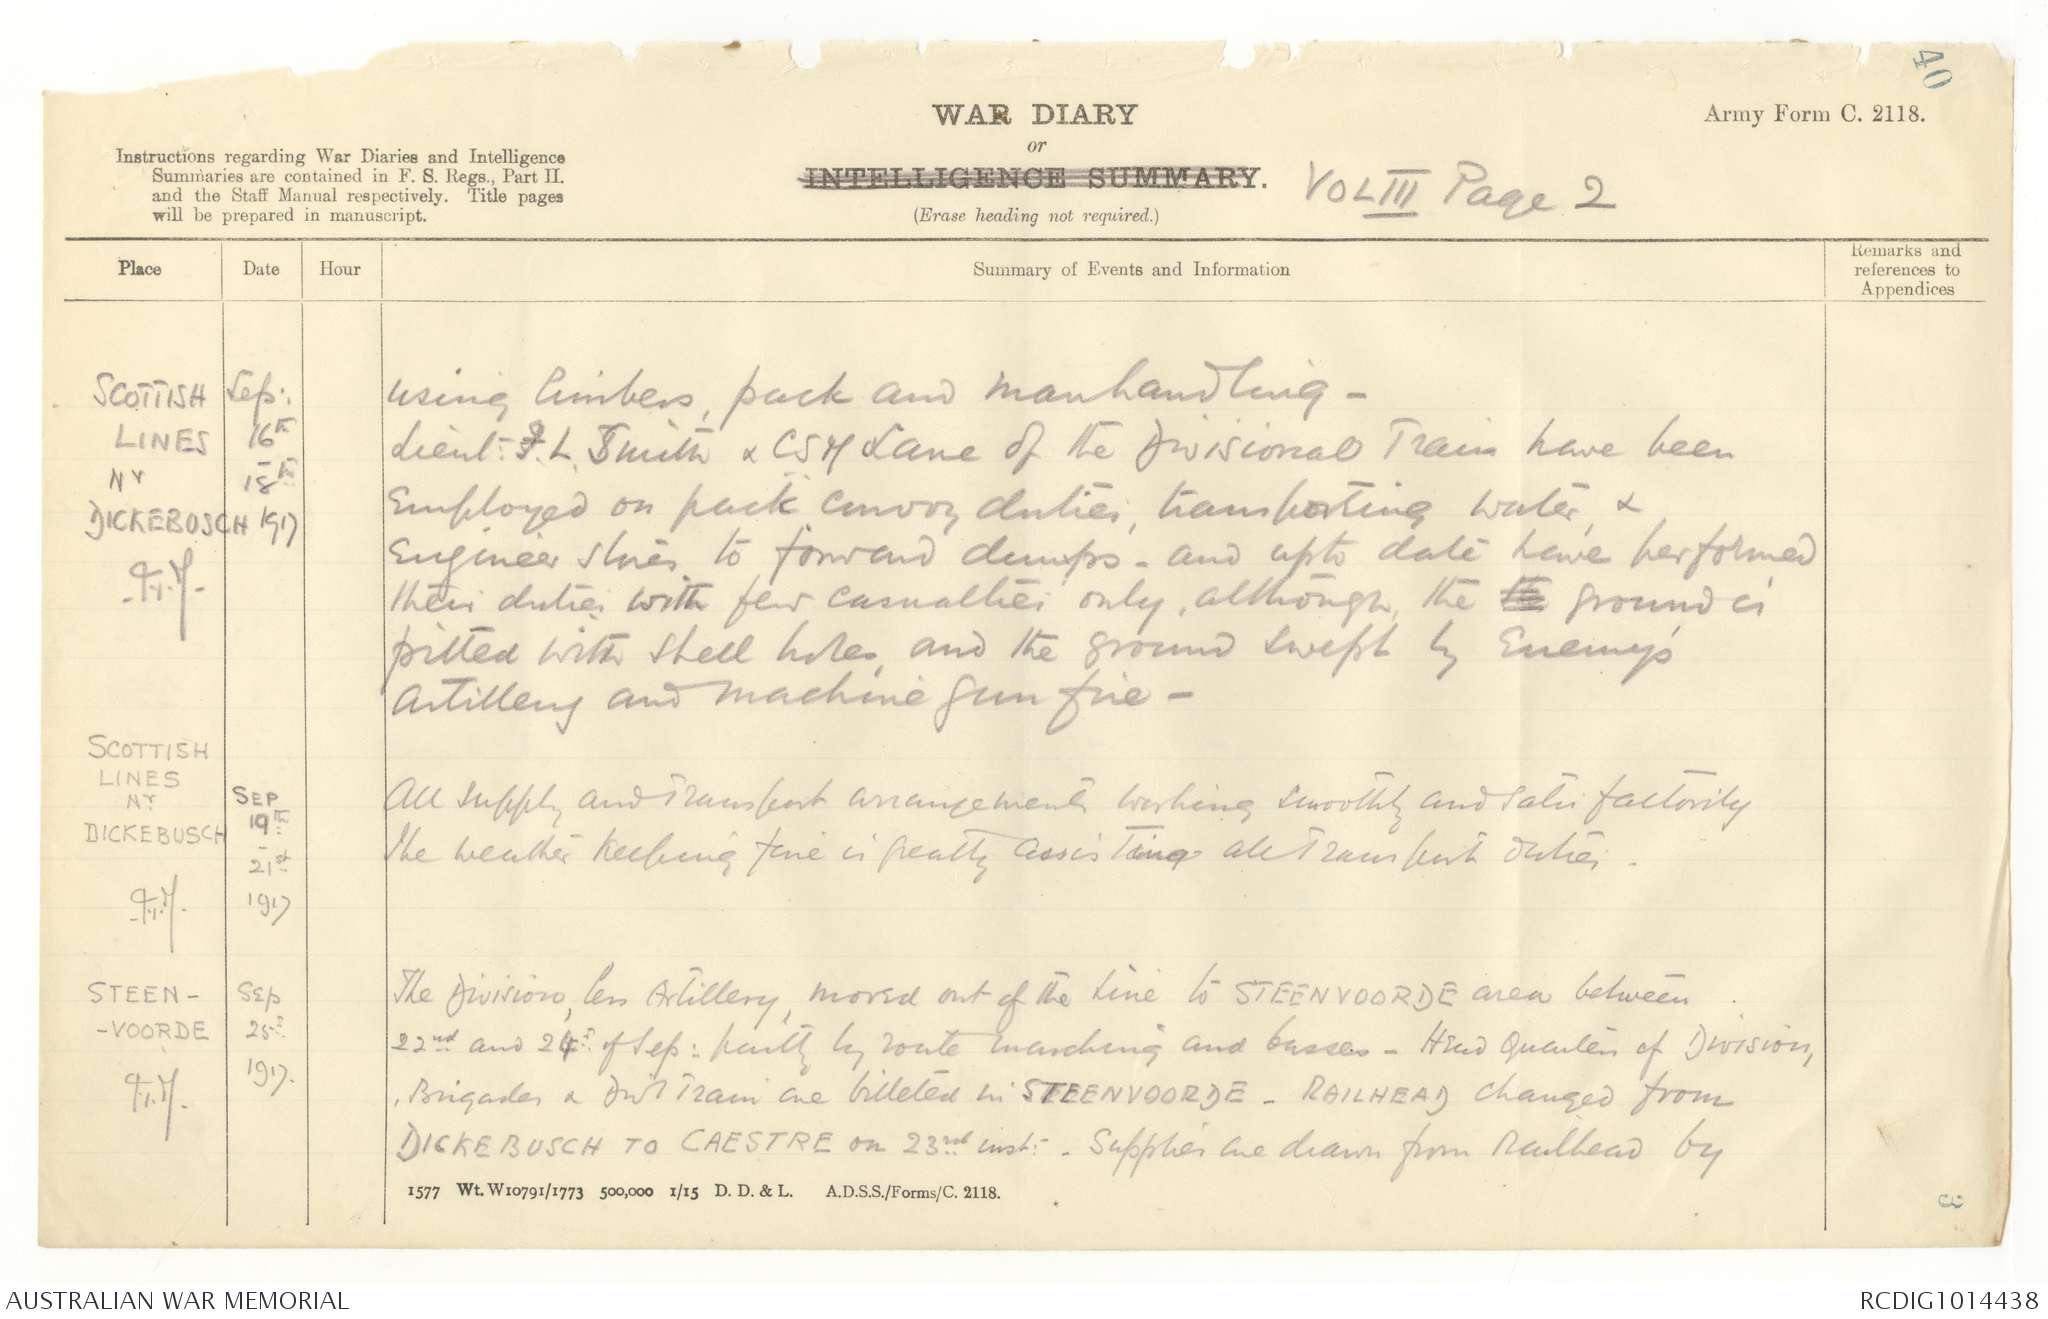 40
WAR DIARY
or
INTELLIGENCE SUMMARY.
(Erase heading not required.)
Army Form C. 2118.
Instructions regarding War Diaries and Intelligence
Summaries are contained in F. S. Regs., Part II.
and the Staff Manual respectively. Title pages
will be prepared in manuscript.
VOL III Page 2
Place
Date
Hour
Summary of Events and Information
Remarks and
references to
Appendices
SCOTTISH
LINES
NY
DICKEBOSCH
Sep:
16th
-
18th
1917
using limbers, pack and manhandling -
Lieut: L Smith & CSM Lane of the Divisional Train have been
Employed on pack convoy duties, transporting water, &
Engineer stores to forward dumps - and upto date have performed
their duties with few casualties only, although, the ground is
pitted with shell holes, and the ground swept by Enemy's
Artillery and Machine Gun fire -
SCOTTISH
LINES
NY
DICKEBUSCH
SEP
19th
-
21st
1917
All supply and Transport arrangements working smoothly and satisfactorily
The weather keeping fine is greatly assisting all Transport duties -
STEEN-
-VOORDE
Sep
25
1917.
The Division, less Artillery, moved out of the Line to STEENVOORDE area between
22nd and 24 of Sep: partly by route marching and busses - Head Quarters of Division,
Brigades & Div'l Train are billeted in STEENVOORDE - RAILHEAD changed from
DICKEBUSCH TO CAESTRE on 23rd inst: - Supplies are drawn from Railhead by
1577 Wt. W10791/1773 500,000 1/15 D. D. & L. A.D.S.S./Forms/C. 2118.
3
AUSTRALIAN WAR MEMORIAL
RCDIG1014438